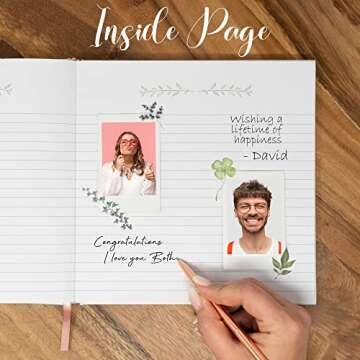 Inside Page
Wishing a
lifetime of
happiness
- David
Congratulations
I love you Both